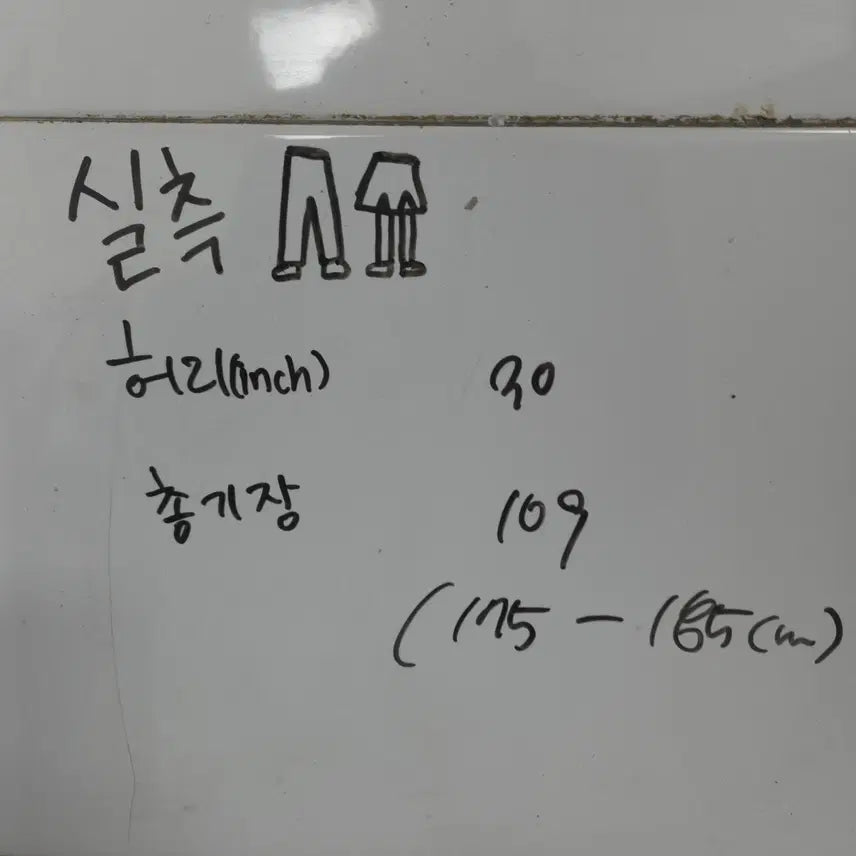 실측
허리(inch) 30
총기장 109
(175 - 185cm)